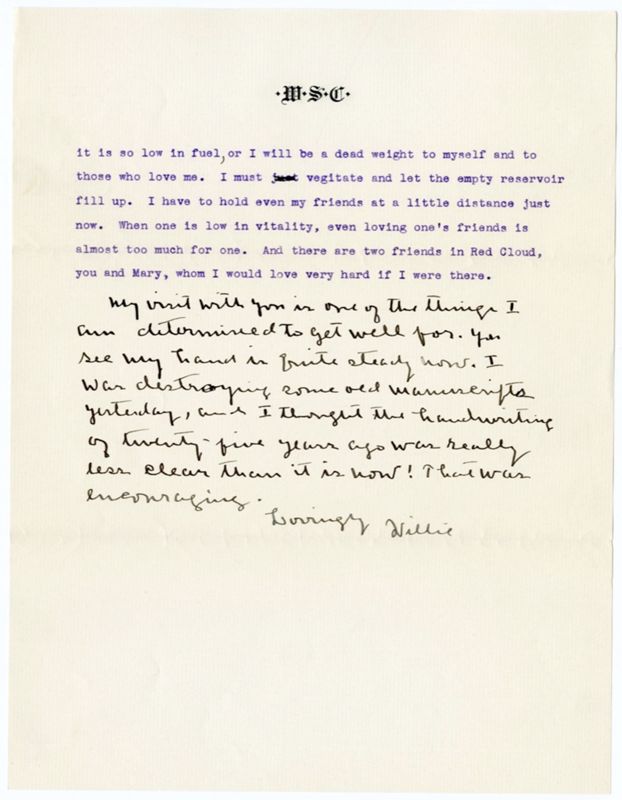 ·W·S·C·
it is so low in fuel, or I will be a dead weight to myself and to
those who love me.  I must just vegitate and let the empty reservoir
fill up.  I have to hold even my friends at a little distance just
now.  When one is low in vitality, even loving one's friends is
almost too much for one.  And there are two friends in Red Cloud,
you and Mary, whom I would love very hard if I were there.
My visit with you is one of the things I
am determined to get well for. You
see my hand is quite steady now. I
was destroying some old manuscripts
yesterday, and I thought the handwriting
of twenty-five years ago was really
less clear than it is now! That was
encouraging.
Lovingly Willie